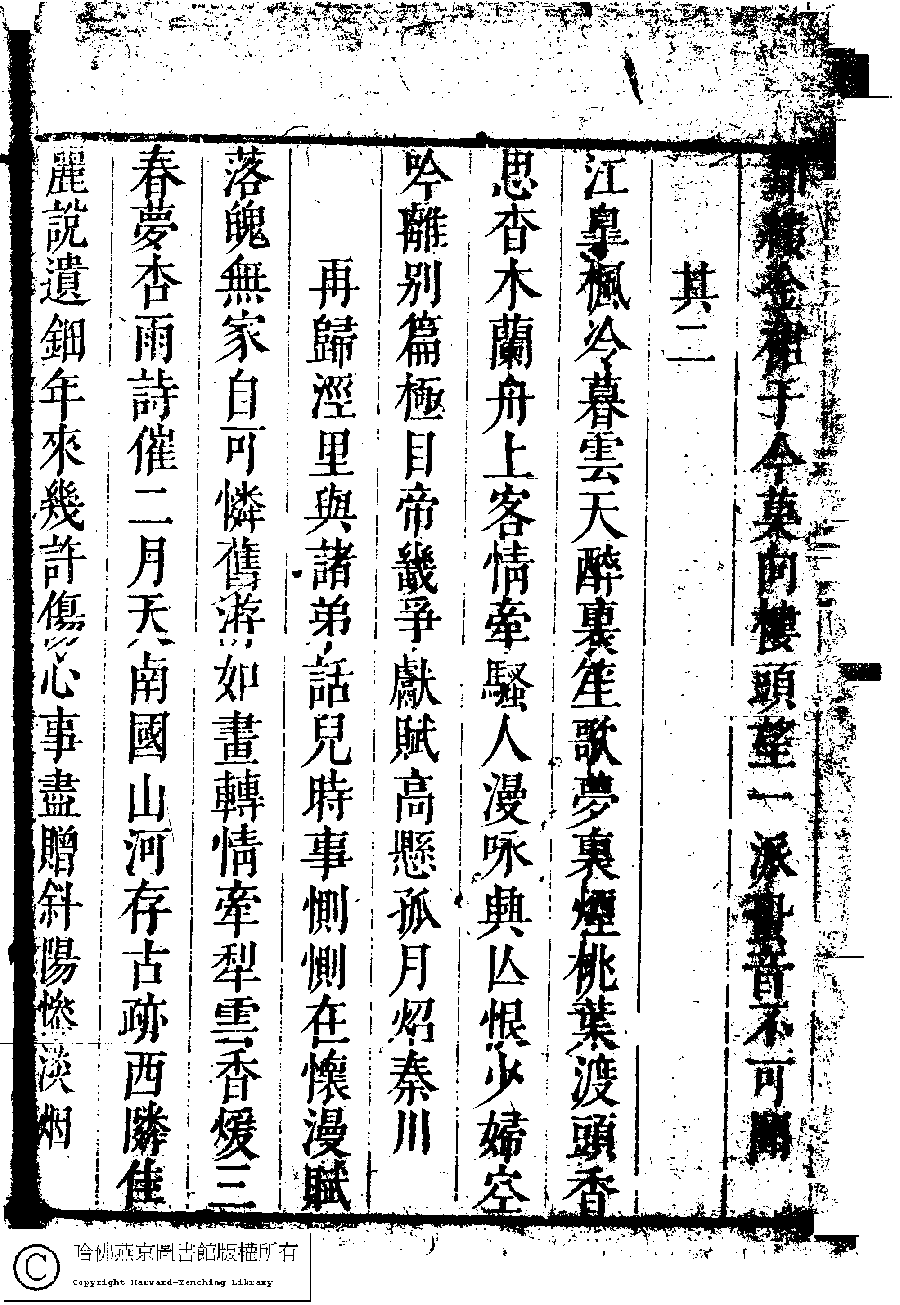 于今莫向樓頭望一派聲音不可聞
其二
江臯楓冷暮雲天醉裏笙歌夢裏煙桃葉渡頭香
思杳木蘭舟上客情牽騷人漫咏興亾恨少婦空
吟離别篇極目帝畿爭獻賦高懸孤月炤秦川
再歸涇里與諸弟話兒時事惻惻在懷漫賦
落魄無家自可憐舊游如畫轉情牽犁雲香煖三
春夢杏雨詩催二月天南國山河存古跡西隣佳
麗說遺鈿年來幾許傷心事盡贈斜陽慘淡烟
哈佛燕京圖書館版權所有
Copyright Harvard-Yenching Library